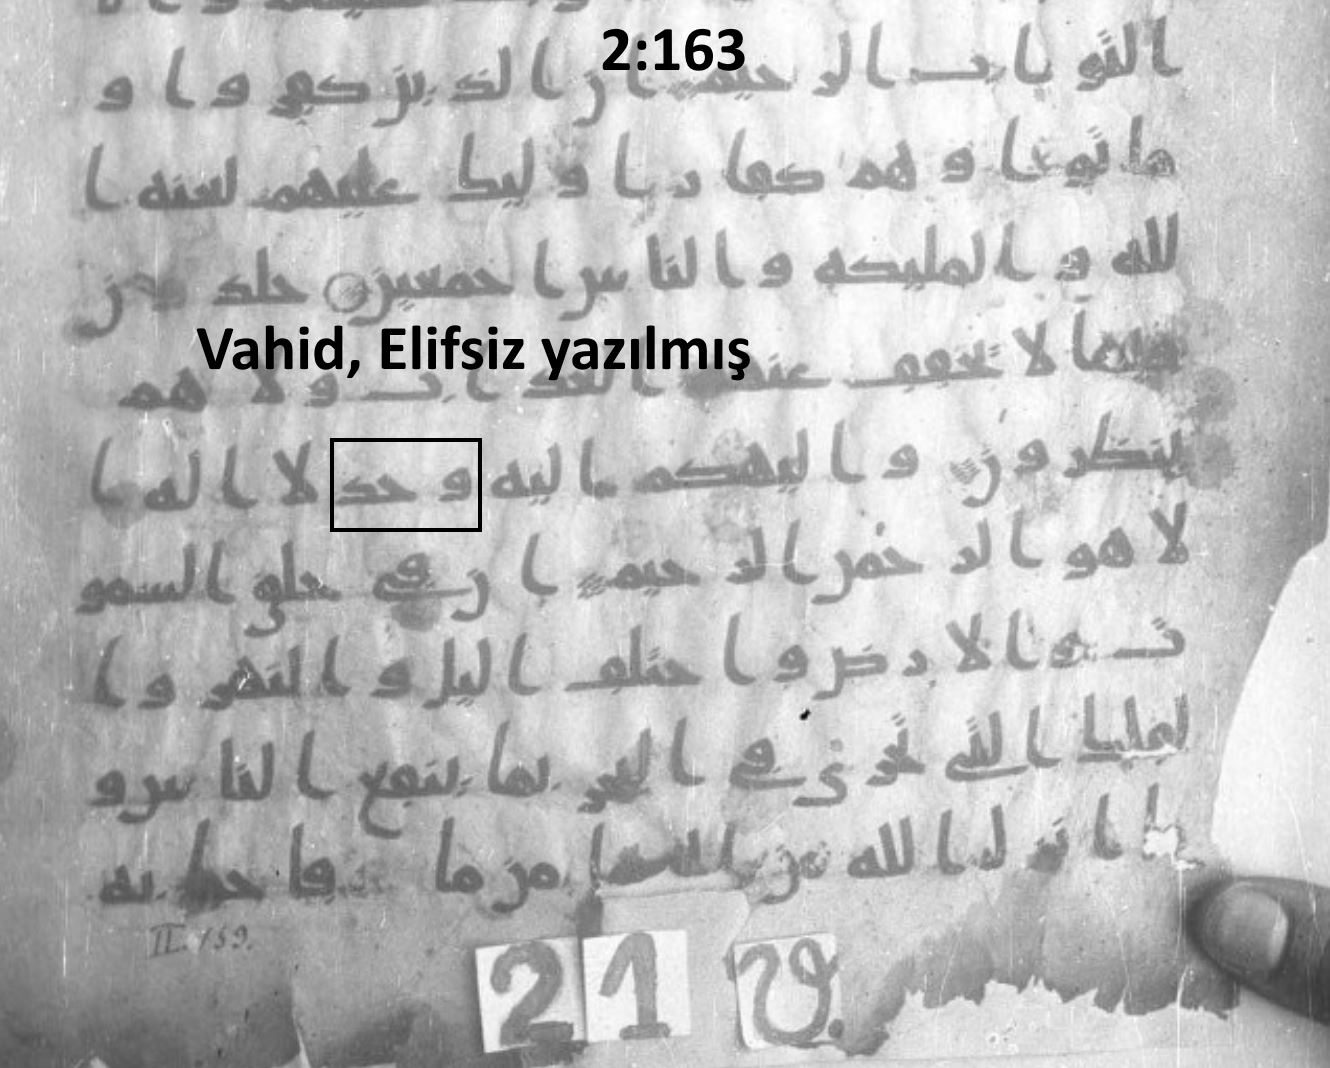 2:163
التواب الرحيم ان الذين كفروا و
ماتوا و هم كفار اوليك عليهم لعنه ا
لله و المليكه و الناس اجمعين خلدين
فيها لا يخفف عنهم العذاب و لا هم
Vahid, Elifsiz yazılmış
ينظرون و اليهكم اليه وحد لا اله ا
لا هو الرحمن الرحيم ان في خلق السمو
ت و الارض و اختلف اليل و النهر و ا
لفلك التي تجري في البحر بما ينفع الناس و
ما انزل الله من السما من ما فاحيا به
II. 159.
21 v.